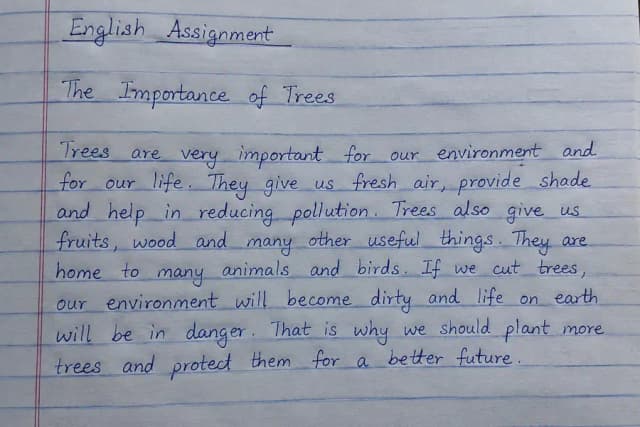 English Assignment
The Importance of Trees
Trees are very important for our environment and
for our life. They give us fresh air, provide shade
and help in reducing pollution. Trees also give us
fruits, wood and many other useful things. They are
home to many animals and birds. If we cut trees,
our environment will become dirty and life on earth
will be in danger. That is why we should plant more
trees and protect them for a better future.